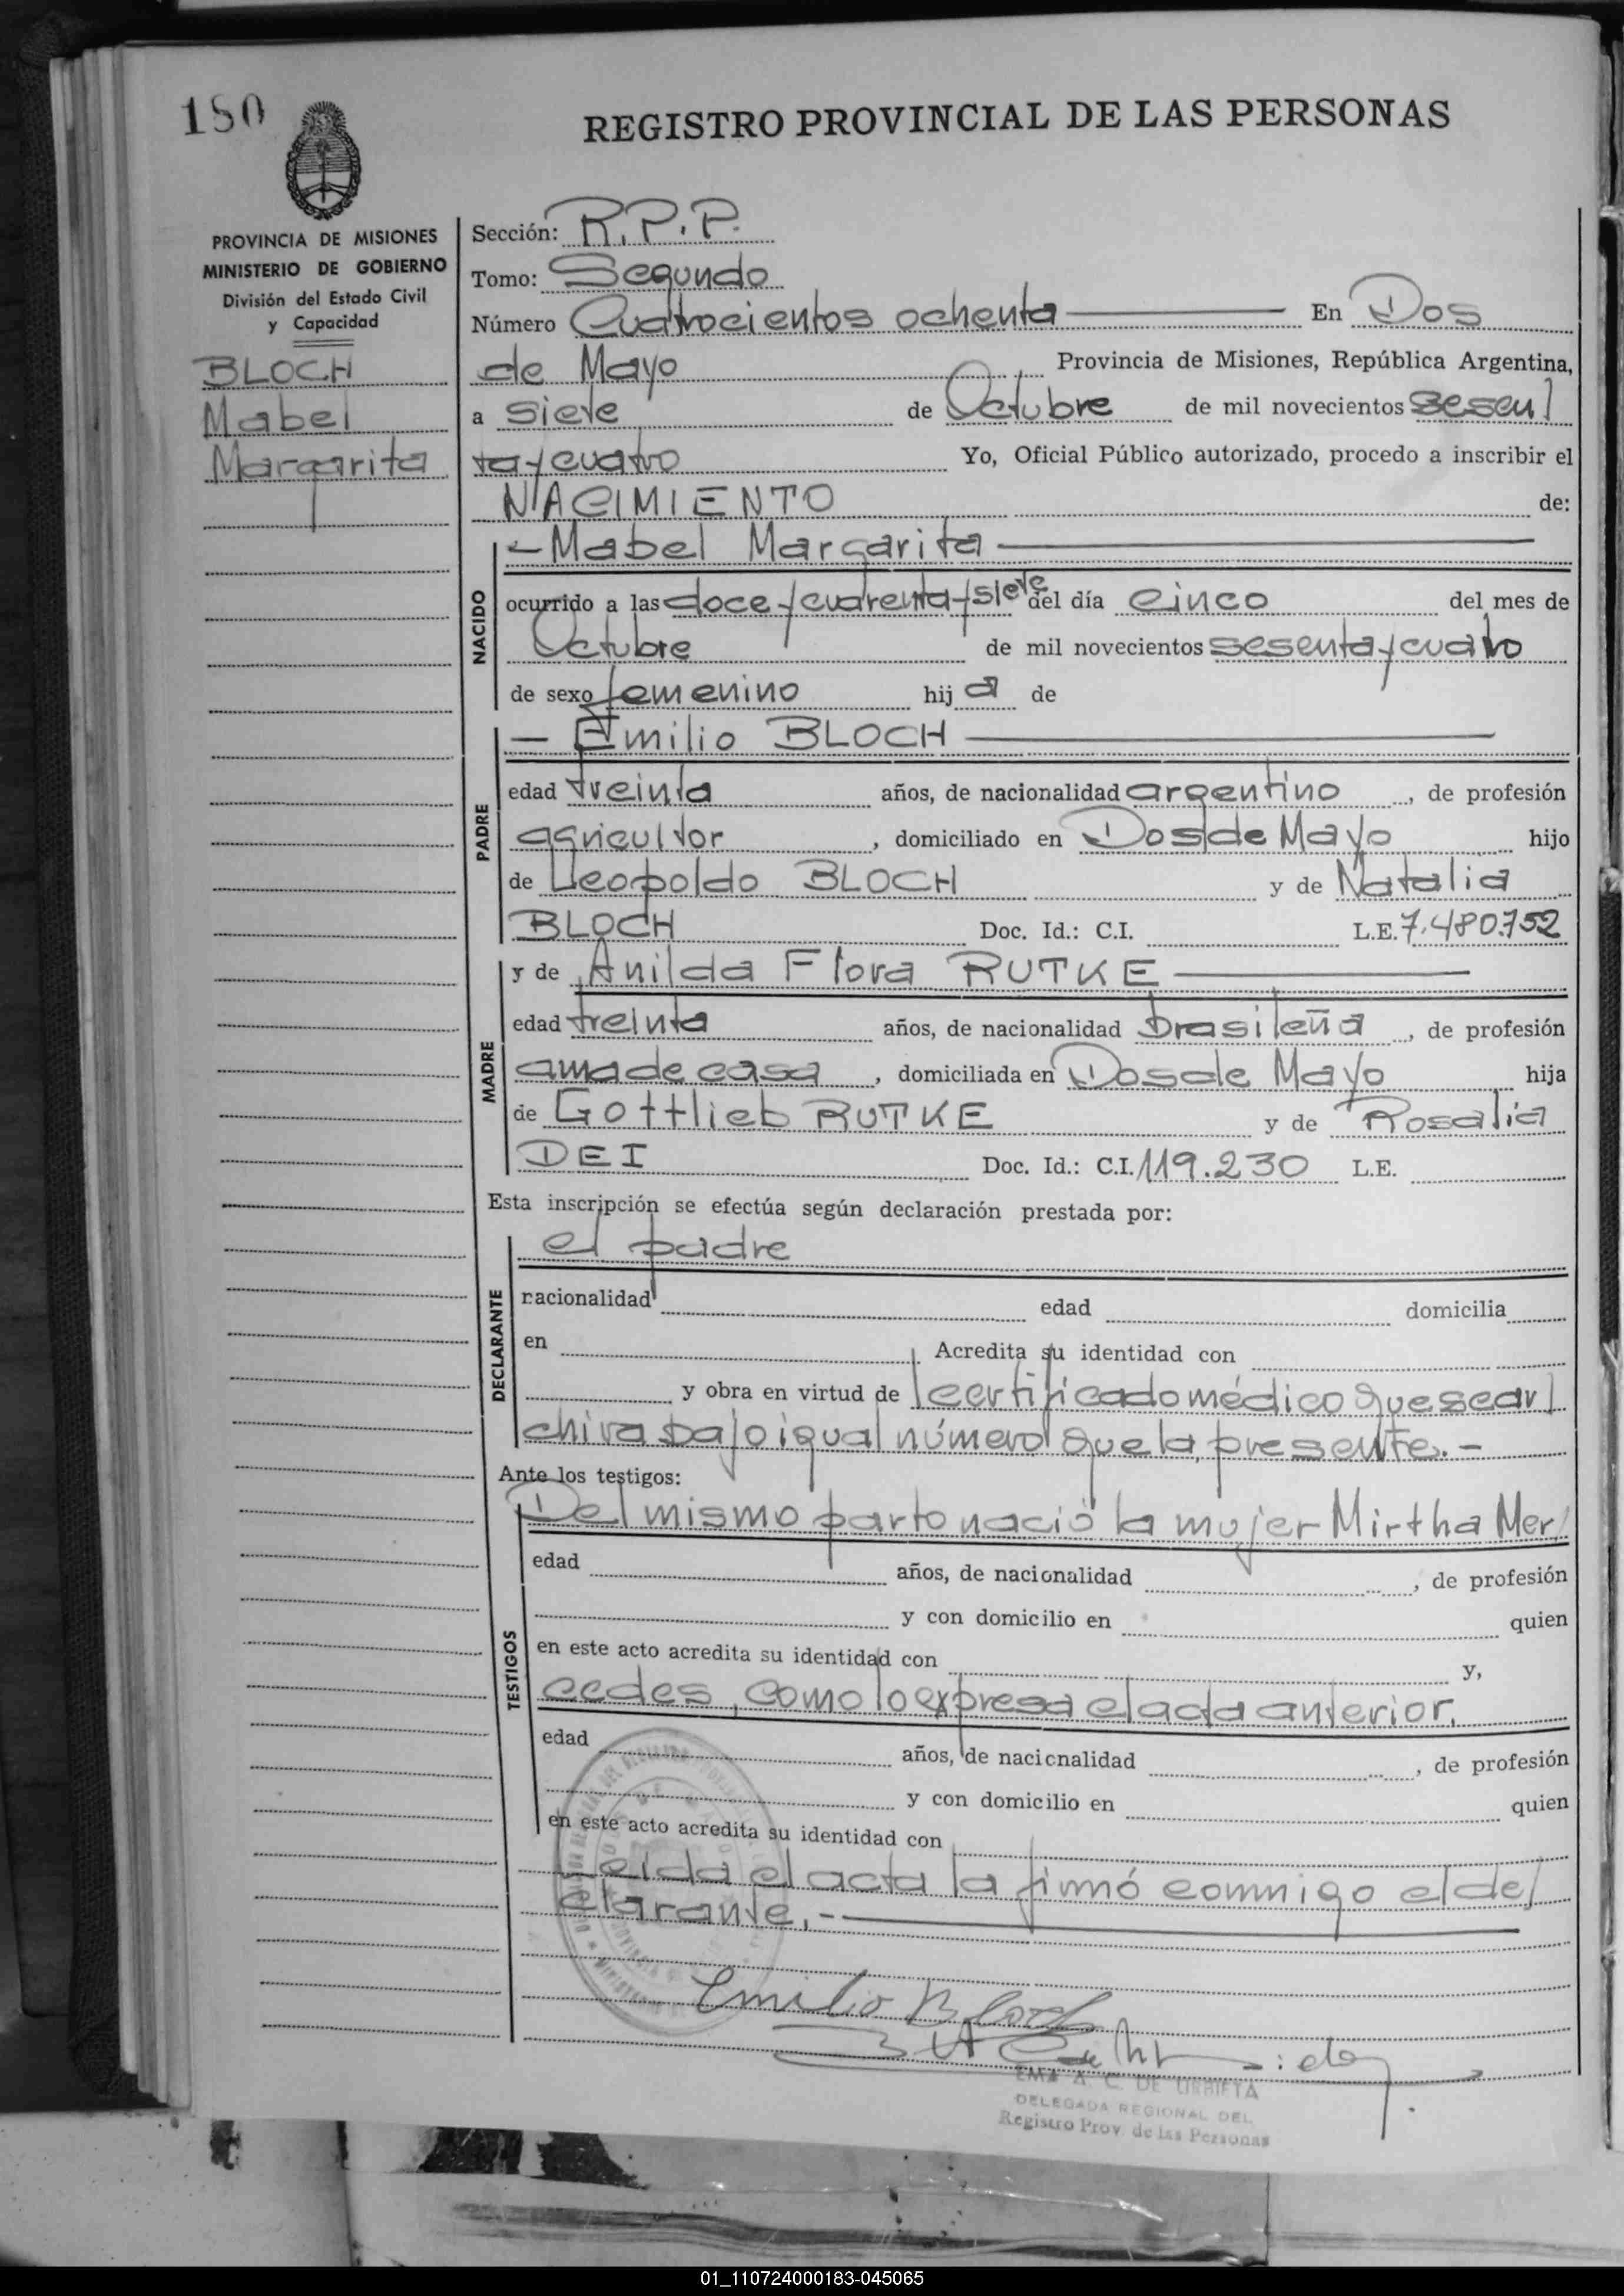 180
REGISTRO PROVINCIAL DE LAS PERSONAS
PROVINCIA DE MISIONES
MINISTERIO DE GOBIERNO
División del Estado Civil
y Capacidad
BLOCH
Mabel
Margarita
Sección: R.P.P.
Tomo: Segundo
Número Cuatrocientos ochenta En Dos
de Mayo Provincia de Misiones, República Argentina,
a siete de Octubre de mil novecientos sesen/
ta y cuatro Yo, Oficial Público autorizado, procedo a inscribir el
NACIMIENTO de:
NACIDO
- Mabel Margarita
ocurrido a las doce y cuarenta y siete del día cinco del mes de
Octubre de mil novecientos sesenta y cuatro
de sexo femenino hij a de
PADRE
- Emilio BLOCH
edad treinta años, de nacionalidad argentino, de profesión
agricultor, domiciliado en Dos de Mayo hijo
de Leopoldo BLOCH y de Natalia
BLOCH Doc. Id.: C.I. L.E. 7.480.752
MADRE
y de Anilda Flora RUTKE
edad treinta años, de nacionalidad brasileña, de profesión
ama de casa, domiciliada en Dos de Mayo hija
de Gottlieb RUTKE y de Rosalia
DEI Doc. Id.: C.I. 119.230 L.E.
Esta inscripción se efectúa según declaración prestada por:
DECLARANTE
el padre
nacionalidad edad domicilia
en Acredita su identidad con
y obra en virtud de certificado médico que se ar/
chiva bajo igual número que la presente.-
Ante los testigos:
TESTIGOS
Del mismo parto nació la mujer Mirtha Mer/
edad años, de nacionalidad , de profesión
y con domicilio en quien
en este acto acredita su identidad con y,
cedes, como lo expresa el acta anterior.
edad años, de nacionalidad , de profesión
y con domicilio en quien
en este acto acredita su identidad con
Leída el acta la firmó conmigo el de/
clarante.-
Emilio Bloch
EMA A. C. DE URBIETA
DELEGADA REGIONAL DEL
Registro Prov. de las Personas
01_110724000183-045065